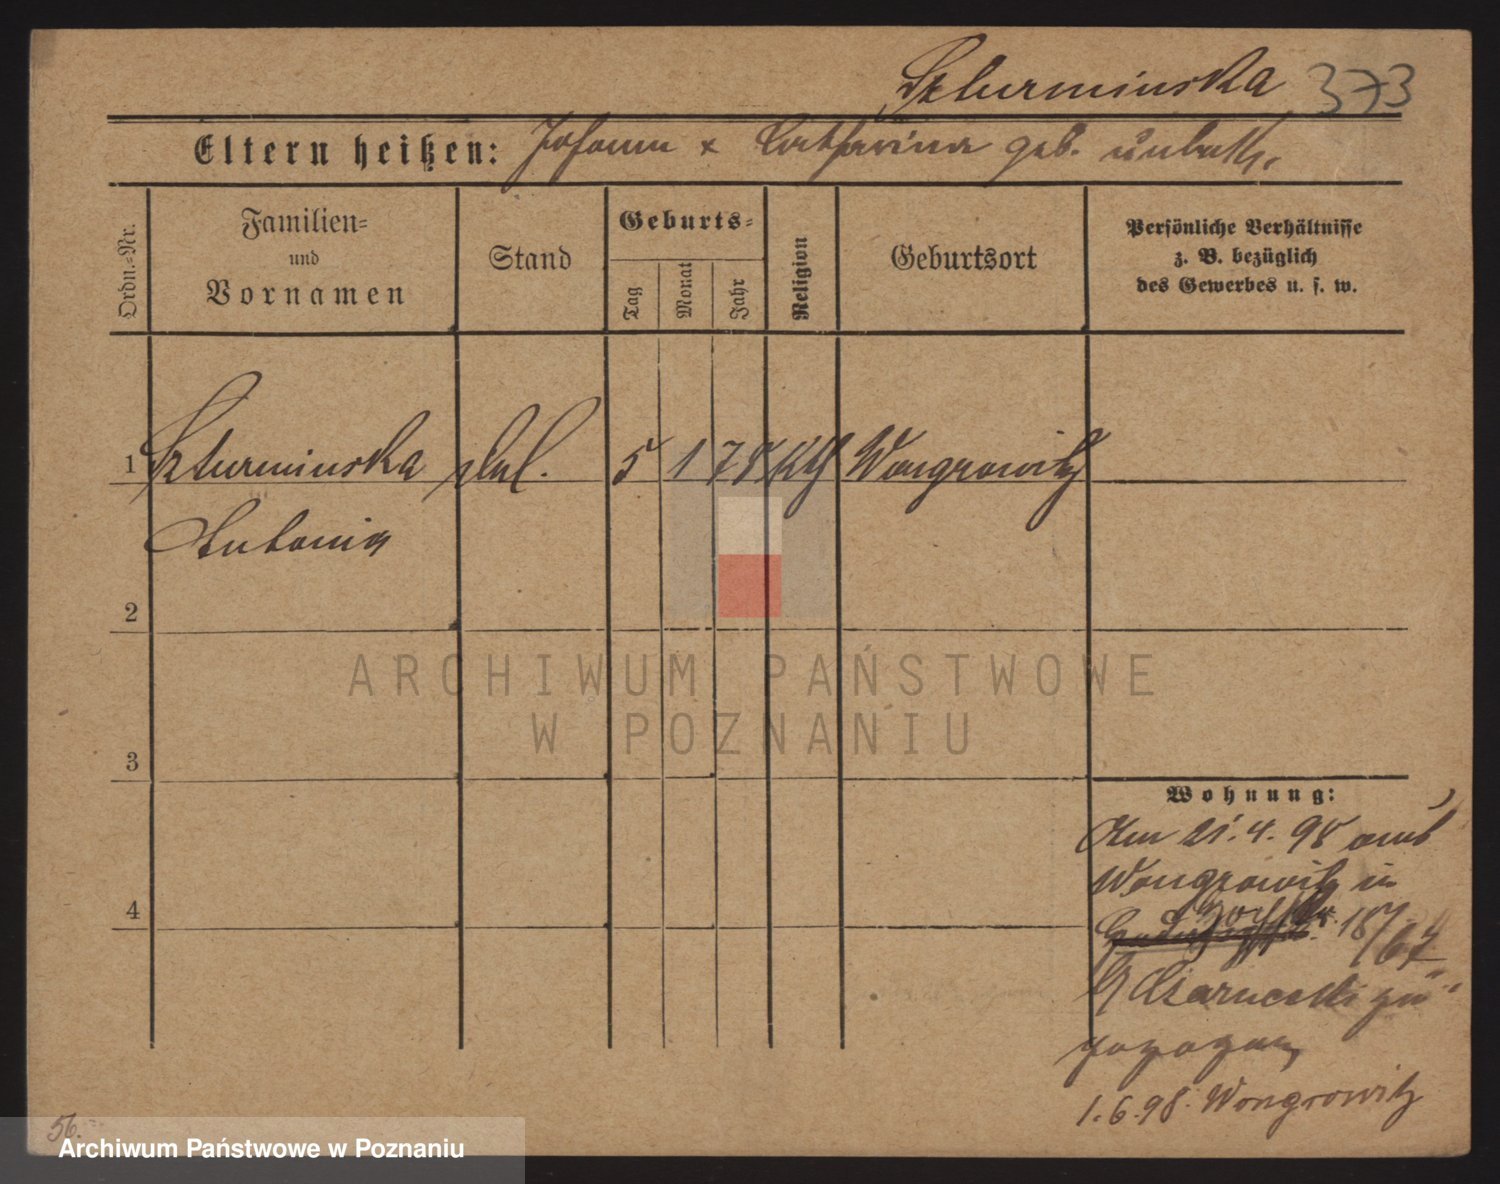 Szturminska 373
Eltern heißen: Johann & Catharina geb. unbek.
Ordn.-Nr.
Familien-
und
Vornamen
Stand
Geburts-
Tag
Monat
Jahr
Religion
Geburtsort
Persönliche Verhältnisse
z. B. bezüglich
des Gewerbes u. s. w.
1 Szturminska 5 1 78 Kth Wongrowitz
Antonia
2
3
4
ARCHIWUM PAŃSTWOWE
W POZNANIU
Wohnung:
Am 21.4.98 aus
Wongrowitz in
18/67
zu-
gezogen
1.6.98. Wongrowitz
56.
Archiwum Państwowe w Poznaniu